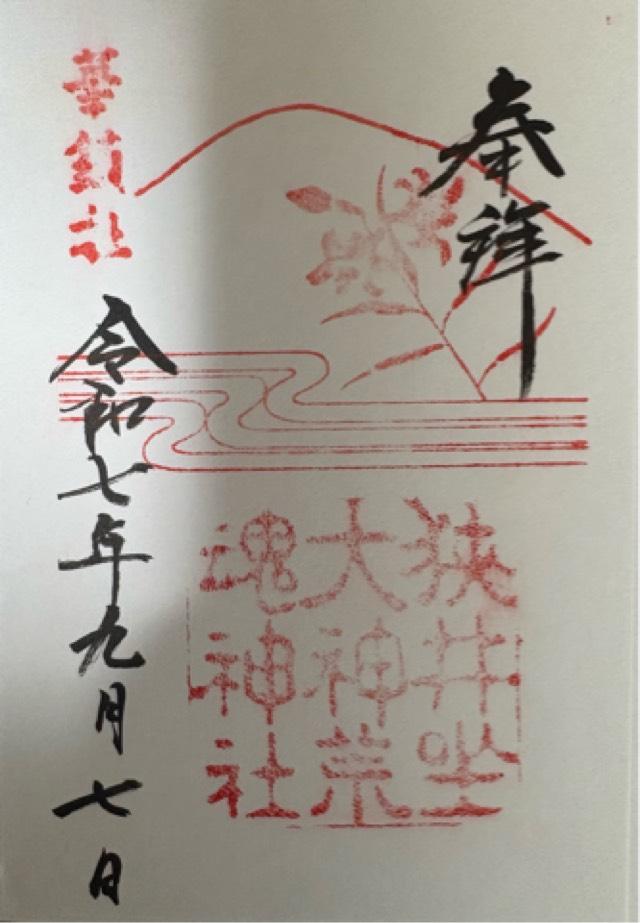 奉拝
狭井坐
大神荒
魂神社
華鎮社
令和七年九月七日